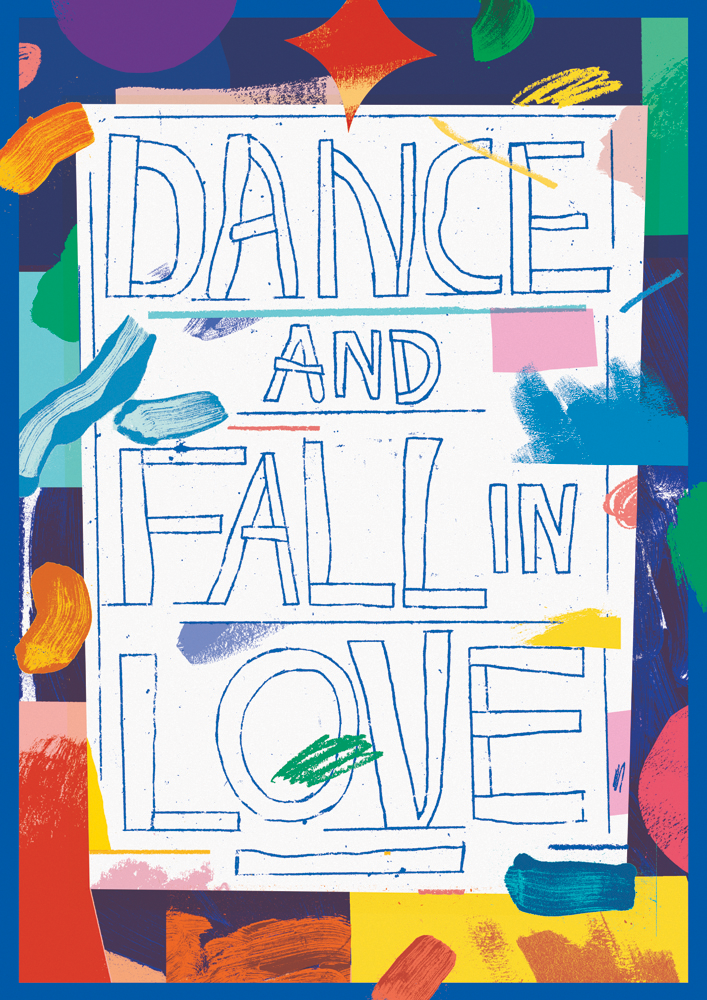 DANCE
AND
FALL IN
LOVE